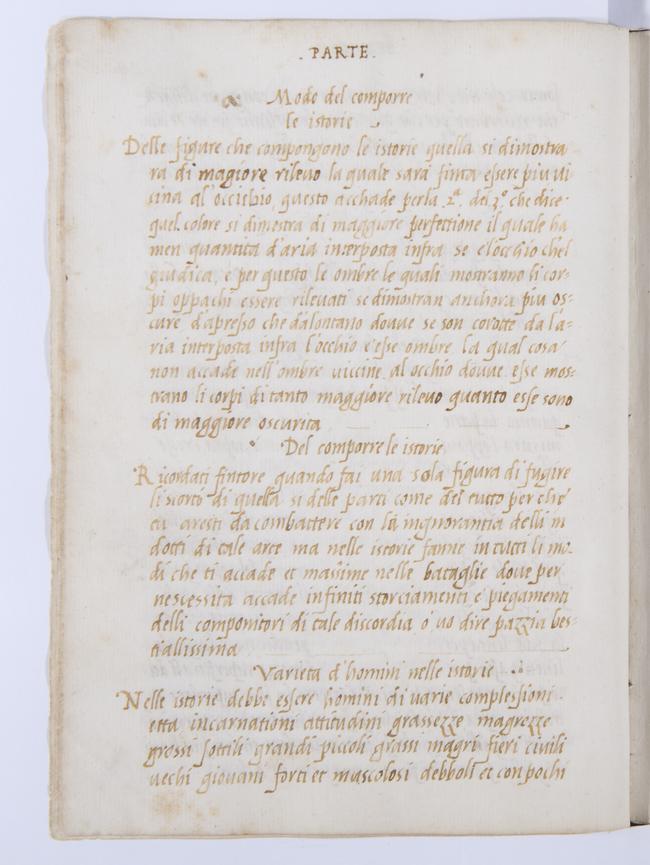 . PARTE .
Modo del comporre
le istorie
Delle figure che compongono le istorie quella si dimostra
ra di magiore rilevo la quale sara finta essere piu vi
cina al'occhio, questo acchade perla 2ª del 3º che dice
quel colore si dimostra di maggiore perfettione il quale ha
men quantita d'aria interposta infra se e l'occhio chel
giudica, e per questo le ombre le quali mostranno li cor-
pi oppachi essere rilevati se dimostran anchora piu os=
cure d'apresso che dalontano douve se son corotte da l'a=
ria interposta infra l'occhio e esse ombre la qual cosa
non accade nell'ombre vuccine al occhio douve esse mos=
trano li corpi di tanto maggiore rilevo quanto esse sono
di maggiore oscurita
Del comporre le istorie
Ricordati fintore quando fai una sola figura di fugire
li scorti di quella si delle parti come del tutto per che
tu aresti da combattere con la ingnorantia delli in
dotti di tale arte ma nelle istorie fanne in tutti li mo-
di che ti accade et massime nelle battaglie dove per
nescessita accade infiniti storciamenti e piegamenti
delli componitori di tale discordia o vo dire pazzia bes=
tiallissima
Varieta d'homini nelle istorie
Nelle istorie debbe essere homini di varie complessioni
etta incarnationi attitudini grassezze magrezze
grossi sottili grandi piccoli grassi magri fieri civili
vechi giovani forti et muscolosi debboli et con pochi